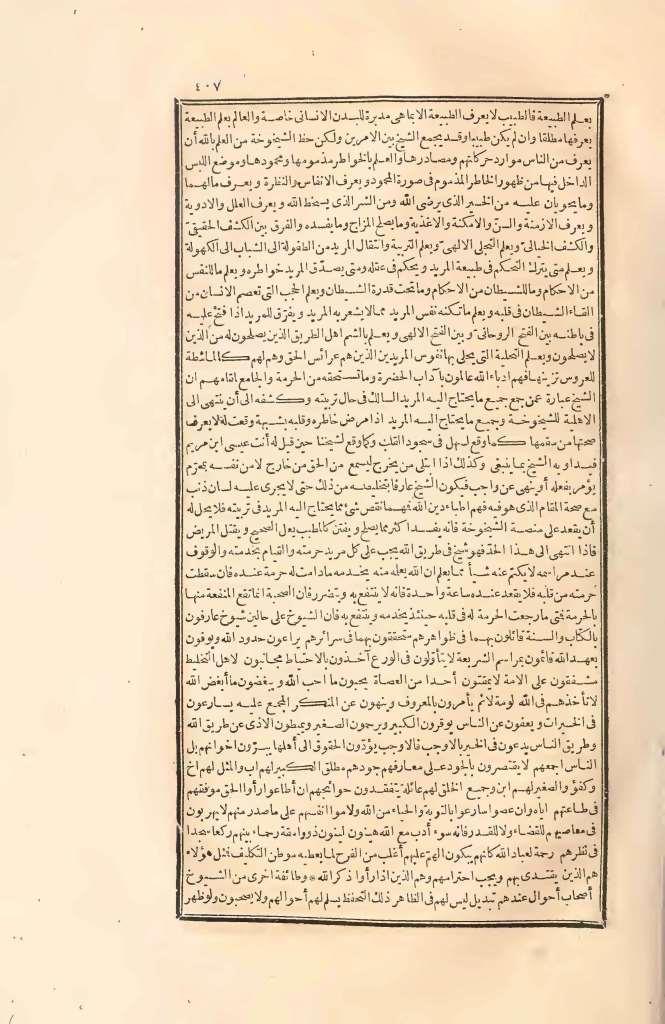 ٤٠٧
بعلم الطبيعة فالطبيب لا يعرف الطبيعة الا بما هى مدبرة للبدن الانسانى خاصة والعالم بعلم الطبيعة
يعرفها مطلقا وان لم يكن طبيبا وقد يجمع الشيخ بين الامرين ولكن حظ الشيخوخة من العلم بالله أن
يعرف من الناس موارد حركاتهم ومصادرها والعلم بالخواطر مذمومها ومحمودها وموضع اللبس
الداخل فيها من ظهور الخاطر المذموم فى صورة المحمود ويعرف الانفاس والنظرة ويعرف ما لهما
وما يحويان عليه من الخير الذى يرضى الله ومن الشر الذى يسخط الله ويعرف العلل والادوية
ويعرف الازمنة والسن والامكنة والاغذية وما يصلح المزاج وما يفسده والفرق بين الكشف الحقيقى
والكشف الخيالى ويعلم التجلى الالهى ويعلم التربية وانتقال المريد من الطفولة الى الشباب الى الكهولة
ويعلم متى يترك التحكم فى طبيعة المريد ويحكم فى عقله ومتى يصدق المريد خواطره ويعلم ما للنفس
من الاحكام وما للشيطان من الاحكام وما تحت قدرة الشيطان ويعلم الحجب التى تعصم الانسان من
القاء الشيطان فى قلبه ويعلم ما تكنه نفس المريد مما لا يشعر به المريد ويفرق للمريد اذا فتح عليه
فى باطنه بين الفتح الروحانى وبين الفتح الالهى ويعلم بالشم اهل الطريق الذين يصلحون له من الذين
لا يصلحون ويعلم التحلية التى يحلى بها نفوس المريدين الذين هم عرائس الحق وهم لهم كالماشطة
للعروس تزينها فهم ادباء الله عالمون بآداب الحضرة وما تستحقه من الحرمة والجامع لمقامهم ان
الشيخ عبارة عن جمع جميع ما يحتاج اليه المريد السالك فى حال تربيته وكشفه الى أن ينتهى الى
الاهلية للشيخوخة وجميع ما يحتاج اليه المريد اذا مرض خاطره وقلبه بشبهة وقعت له لا يعرف
صحتها من سقمها كما وقع لسهل فى سجود القلب وكما وقع لشيخنا حين قيل له أنت عيسى ابن مريم
فيداويه الشيخ بما ينبغى وكذلك اذا ابتلى من يخرج ليسمع من الحق من خارج لا من نفسه بمحرم
يؤمر بفعله أو ينهى عن واجب فيكون الشيخ عارفا بتخليصه من ذلك حتى لا يجرى عليه لسان ذنب
مع صحة المقام الذى هو فيه فهم اطباء دين الله فهما نقص شئ مما يحتاج اليه المريد فى تربيته فلا يحل له
أن يقعد على منصة الشيخوخة فانه يفسد اكثر مما يصلح ويفتن كالمتطبب يعل الصحيح ويقتل المريض
فاذا انتهى الى هذا الحد فهو شيخ فى طريق الله يجب على كل مريد حرمته والقيام بخدمته والوقوف
عند مراسمه لا يكتم عنه شيأ مما يعلم ان الله يعلمه منه يخدمه مادامت له حرمة عنده فان سقطت
حرمته من قلبه فلا يقعد عنده ساعة واحدة فانه لا ينتفع به ويتضرر فان الصحبة انما تقع المنفعة منها
بالحرمة فمتى ما رجعت الحرمة له فى قلبه حينئذ يخدمه وينتفع به فان الشيوخ على حالين شيوخ عارفون
بالكتاب والسنة قائلون بهما فى ظواهرهم متحققون بهما فى سرائرهم يراعون حدود الله ويوفون
بعهد الله قائمون بمراسم الشريعة لا يتأولون فى الورع آخذون بالاحتياط مجانبون لاهل التخليط
مشفقون على الامة لا يمقتون أحدا من العصاة يحبون ما احب الله ويبغضون ما أبغض الله
لا تأخذهم فى الله لومة لائم يأمرون بالمعروف وينهون عن المنكر المجمع عليه يسارعون
فى الخيرات ويعفون عن الناس يوقرون الكبير ويرحمون الصغير ويميطون الاذى عن طريق الله
وطريق الناس يدعون فى الخير بالاوجب فالاوجب يؤدون الحقوق الى أهلها يبرون اخوانهم بل
الناس اجمعهم لا يقتصرون بالجود على معارفهم جودهم مطلق الكبير لهم اب والمثل لهم اخ
وكفؤ والصغير لهم ابن وجميع الخلق لهم عائلة يتفقدون حوائجهم ان أطاعوا رأوا الحق موفقهم
فى طاعتهم اياه وان عصوا سارعوا بالتوبة والحياء من الله ولاموا انفسهم على ما صدر منهم لا يهربون
فى معاصيهم للقضاء ولا للقدر فانه سوء أدب مع الله هينون لينون ذووا مقة رحماء بينهم ركعا سجدا
فى نظرهم رحمة لعباد الله كانهم يبكون الهم عليهم أغلب من الفرح لما يعطيه موطن التكليف فمثل هؤلاء
هم الذين يقتدى بهم ويجب احترامهم وهم الذين اذا رأوا ذكر الله * وطائفة اخرى من الشيوخ
أصحاب أحوال عندهم تبديل ليس لهم فى الظاهر ذلك التحفظ يسلم لهم أحوالهم ولا يصحبون ولو ظهر